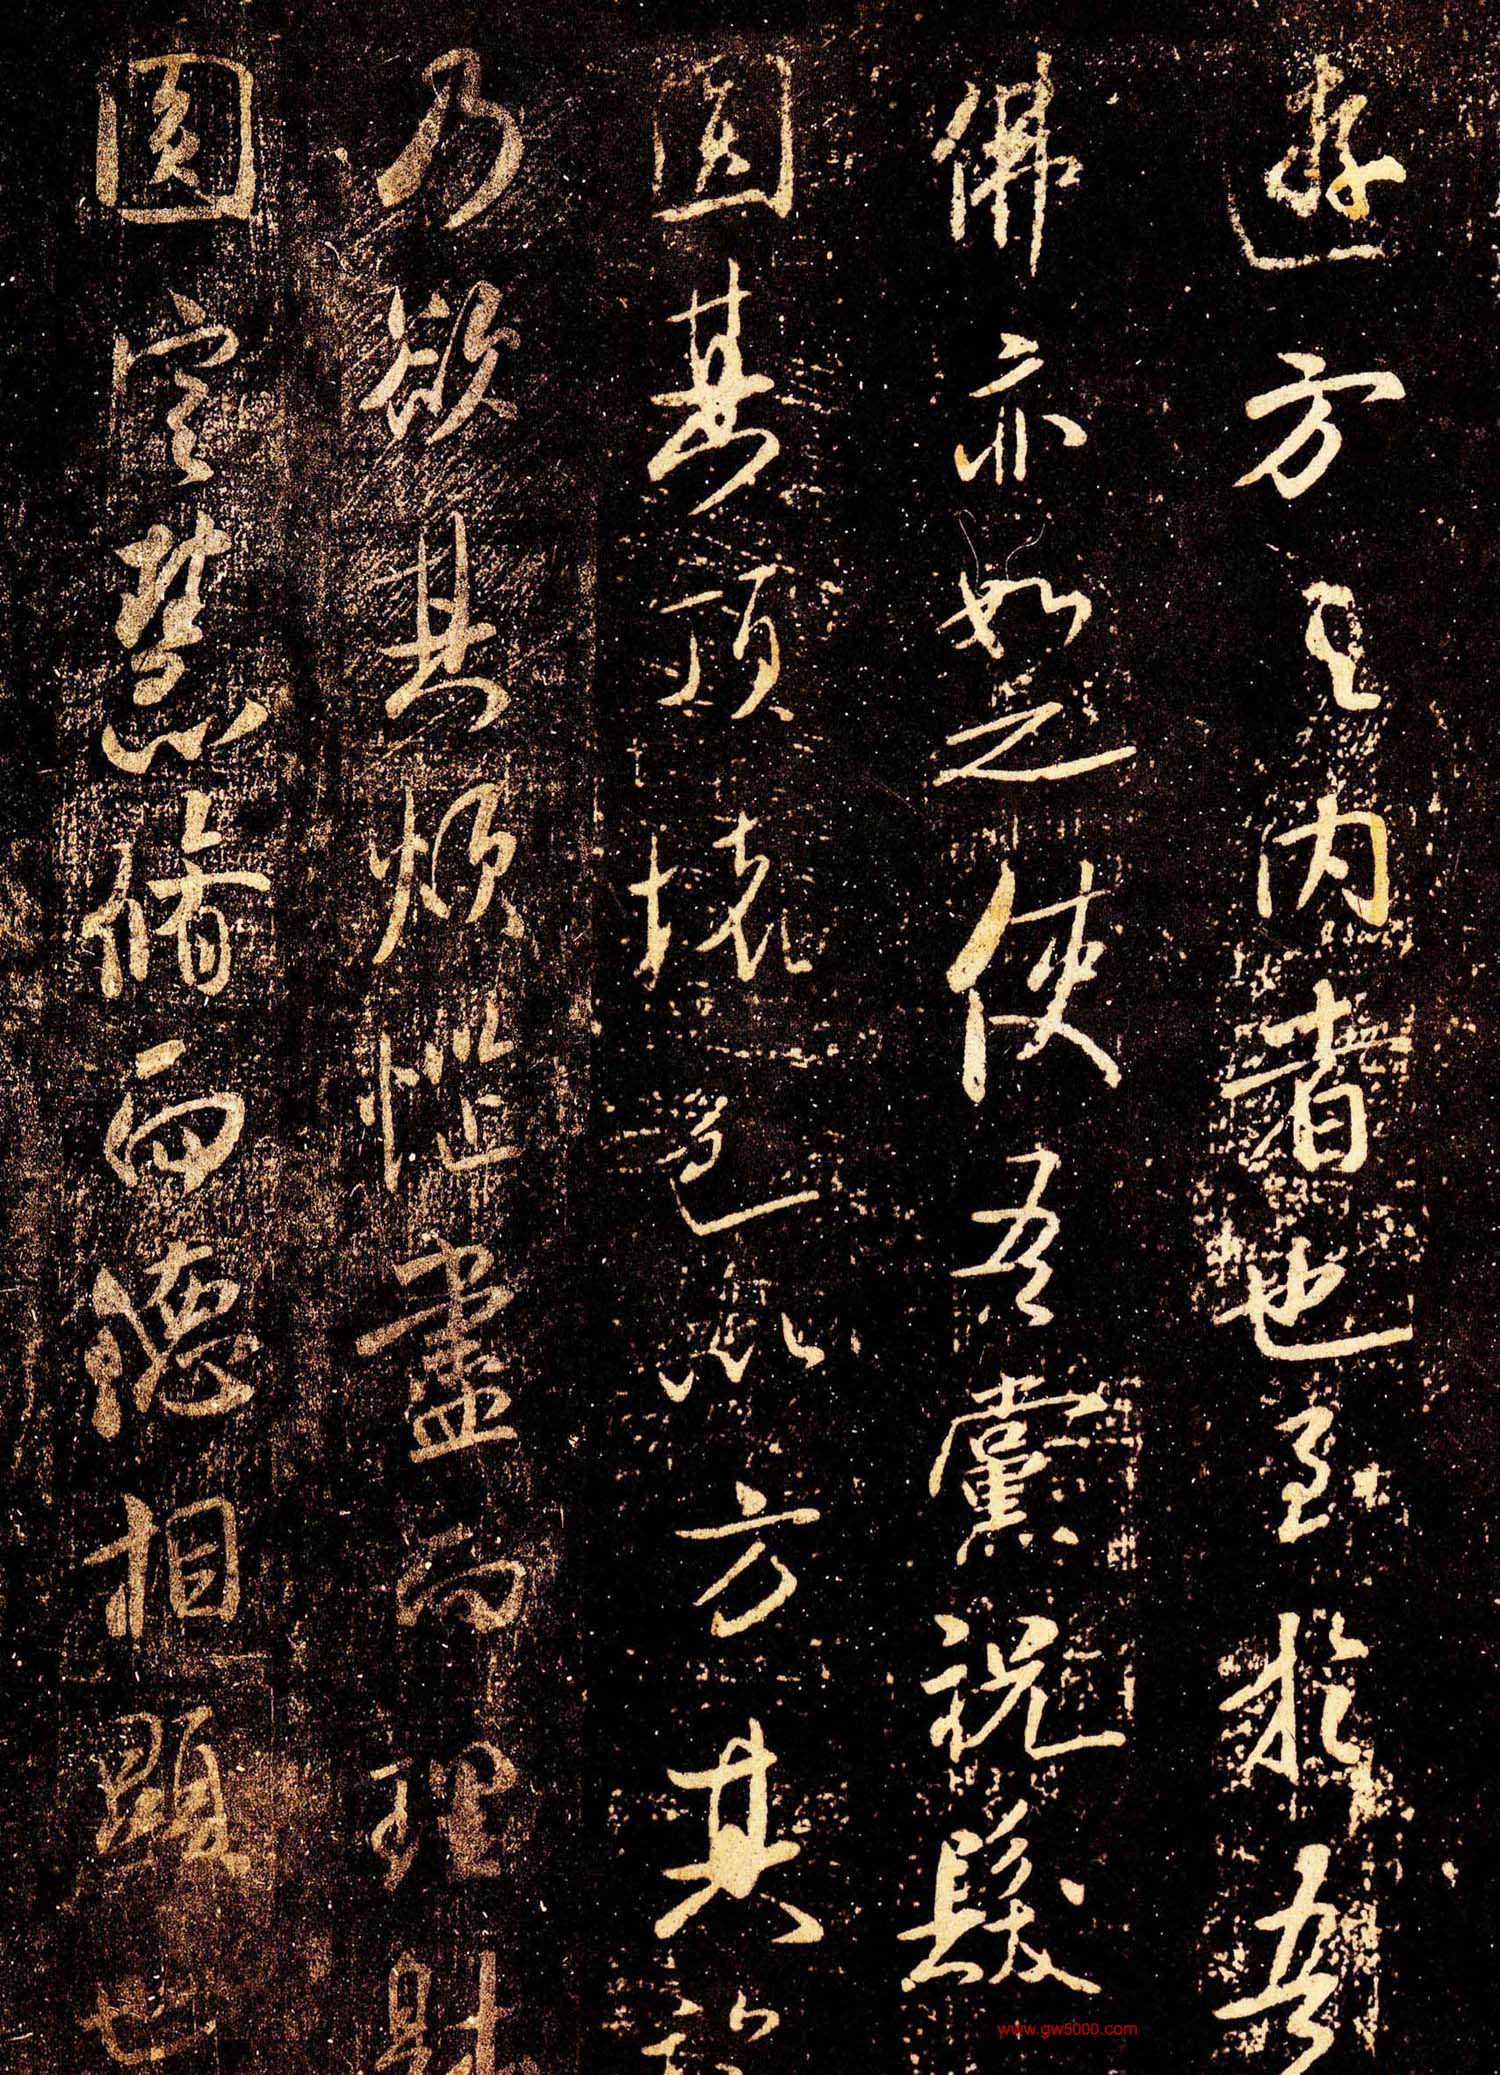 遊方之內者也至於吾
佛亦如之使吾黨祝髮
圓其頂壞色以方其
乃欲其煩惱盡而理
圓定慧脩而德相顯也
www.gw5000.com